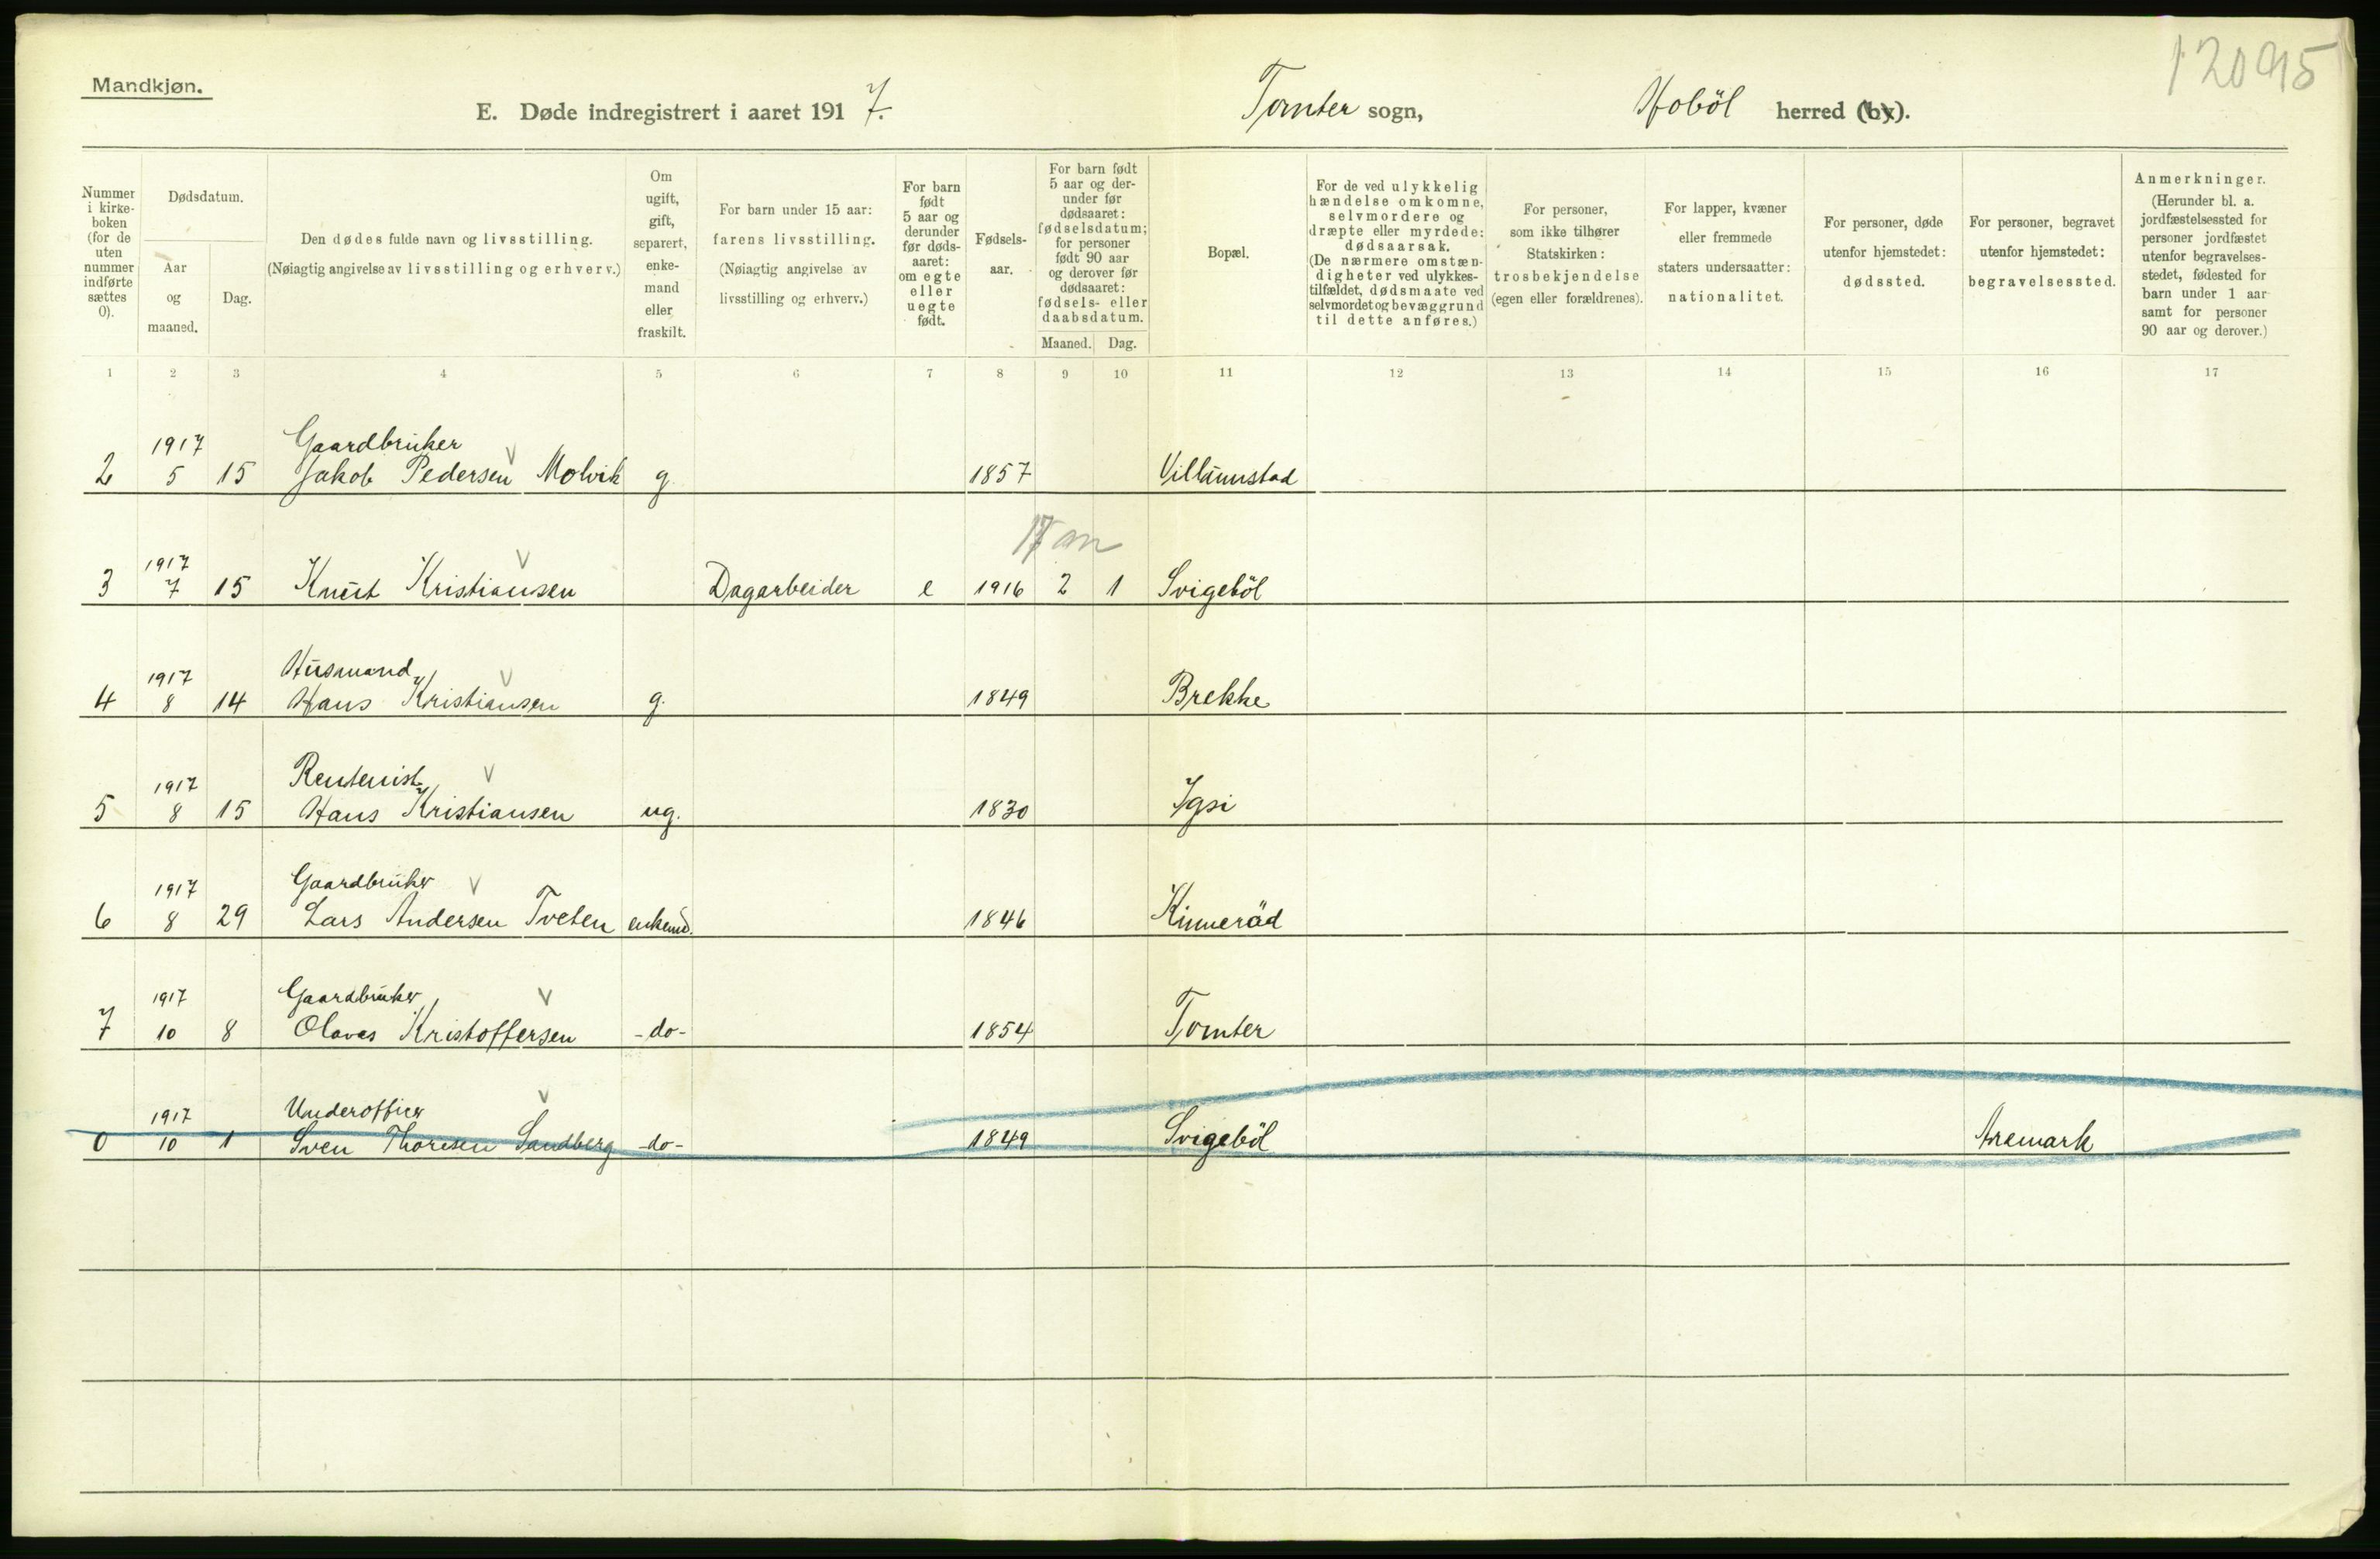 12095
Mandkjøn.
E. Døde indregistrert i aaret 1917. Tomter sogn, Hobøl herred (by).
Nummer i kirkeboken (for de uten nummer indførte sættes 0).
Dødsdatum.
Aar og maaned.
Dag.
Den dødes fulde navn og livsstilling.
(Nøiagtig angivelse av livsstilling og erhverv.)
Om ugift, gift, separert, enkemand eller fraskilt.
For barn under 15 aar: farens livsstilling.
(Nøiagtig angivelse av livsstilling og erhverv.)
For barn født 5 aar og derunder før dødsaaret: om egte eller uegte født.
Fødselsaar.
For barn født 5 aar og derunder før dødsaaret: fødselsdatum; for personer født 90 aar og derover før dødsaaret: fødsels- eller daabsdatum.
Maaned. Dag.
Bopæl.
For de ved ulykkelig hændelse omkomne, selvmordere og dræpte eller myrdede: dødsaarsak.
(De nærmere omstændigheter ved ulykkestilfældet, dødsmaate ved selvmordet og bevæggrund til dette anføres.)
For personer, som ikke tilhører Statskirken: trosbekjendelse (egen eller forældrenes).
For lapper, kvæner eller fremmede staters undersaatter: nationalitet.
For personer, døde utenfor hjemstedet: dødssted.
For personer, begravet utenfor hjemstedet: begravelsessted.
Anmerkninger.
(Herunder bl. a. jordfæstelsessted for personer jordfæstet utenfor begravelsesstedet, fødested for barn under 1 aar samt for personer 90 aar og derover.)
1 2 3 4 5 6 7 8 9 10 11 12 13 14 15 16 17
1917 Gaardbruker
2 5 15 Jakob Pedersen Molvik g. 1857 Villaunstad
17 m
1917
3 7 15 Knut Kristiansen Dagarbeider e 1916 2 1 Svigeböl
1917 Husmand
4 8 14 Hans Kristiansen g. 1849 Brekke
1917 Rentenist
5 8 15 Hans Kristiansen ug. 1830 Igsi
1917 Gaardbruker
6 8 29 Lars Andersen Tveten enkemd. 1846 Kinneröd
1917 Gaardbruker
7 10 8 Olaves Kristoffersen -do- 1854 Tomter
1917 Underofficer
0 10 1 Sven Thoresen Sandberg -do- 1849 Svigeböl Aremark